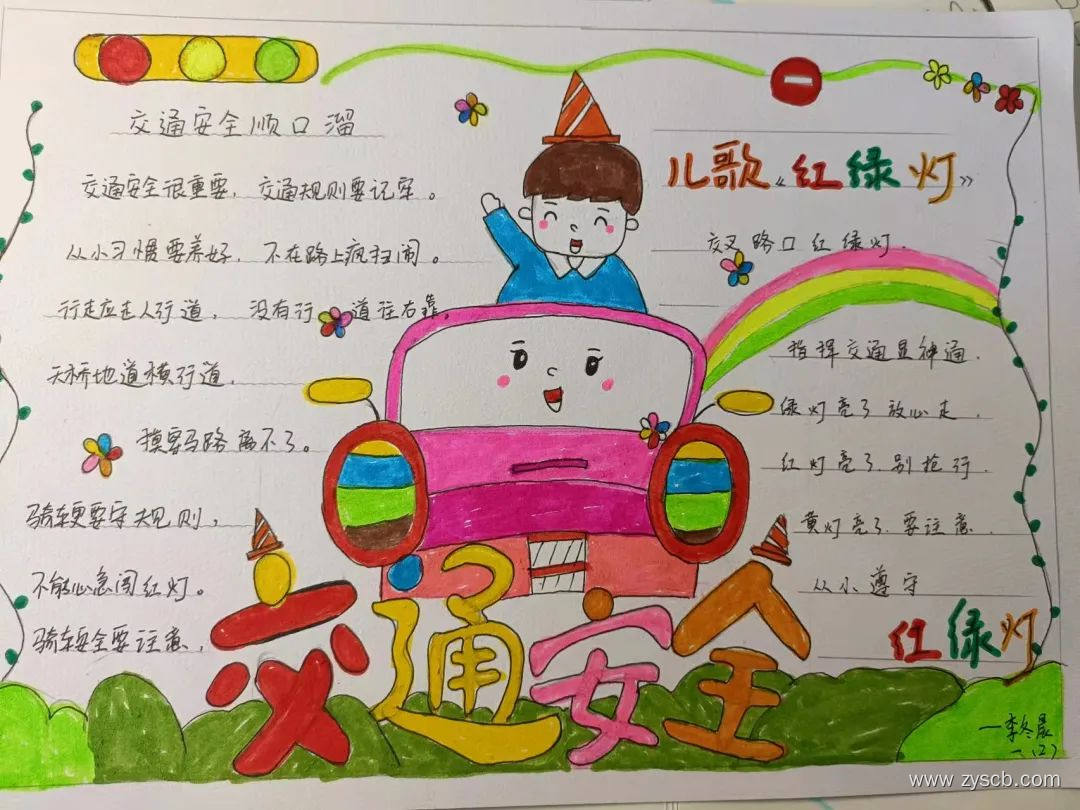 交通安全顺口溜
交通安全很重要，交通规则要记牢。
从小习惯要养好，不在路上疯扫闹。
行走应走人行道，没有行 道往右靠。
天桥地道横行道，
横穿马路离不了。
骑车更要守规则，
不能心急闯红灯。
骑车安全要注意，
儿歌《红绿灯》
交叉路口红绿灯，
指挥交通显神通，
绿灯亮了放心走，
红灯亮了别抢行，
黄灯亮了要注意，
从小遵守
红绿灯
交通安全
一李冬晨
一、(2)
www.zyscb.com